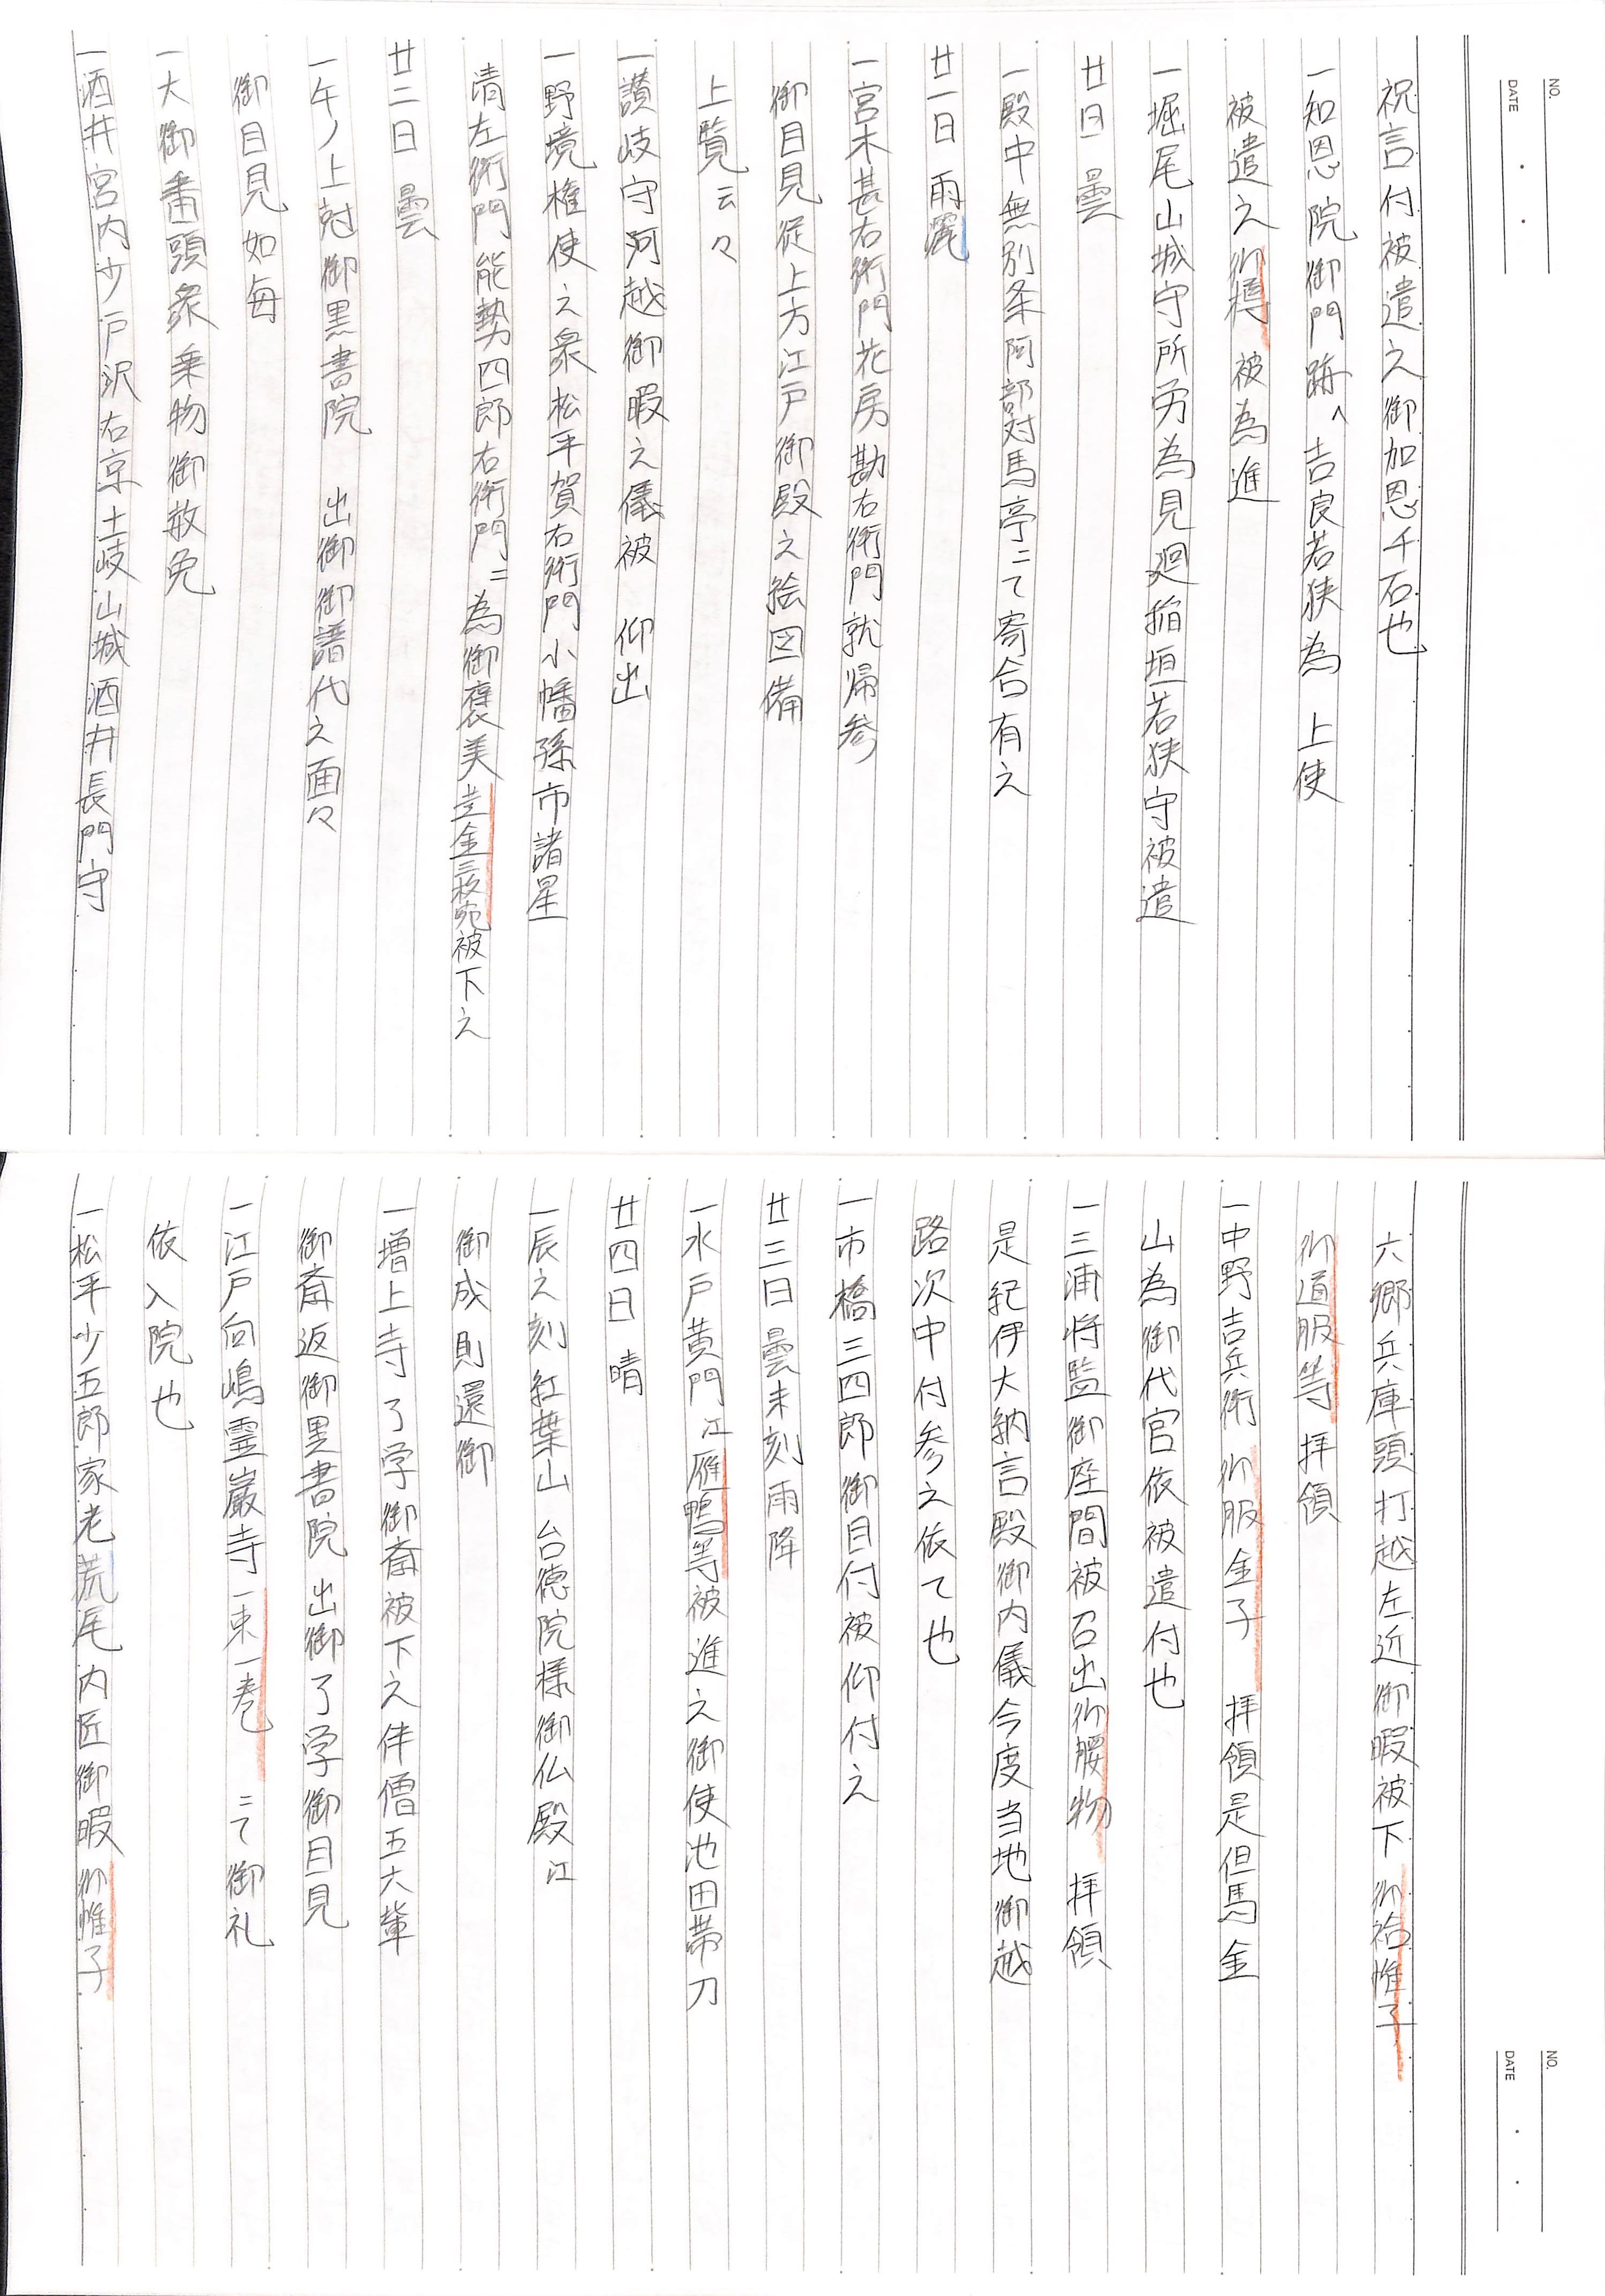 NO.
DATE
祝言付被遣之御加恩千石也
一知恩院御門跡へ吉良若狭為 上使
被遣之 被為進
一堀尾山城守所労為見廻稲垣若狭守被遣
廿日 曇
一殿中無別条阿部対馬亭ニて寄合有之
廿一日 雨
一宮木甚右衛門花房勘右衛門就帰参
御目見従上方江戸御殿之絵図備
上覧云々
一讃岐守河越御暇之儀被 仰出
一野境権使之衆松平賀右衛門小幡孫市諸星
清左衛門能勢四郎右衛門ニ為御褒美 金三枚宛被下之
廿二日 曇
一午ノ上尅御黒書院 出御御譜代之面々
御目見如毎
一大御番頭衆乗物御赦免
一酒井宮内少戸沢右京土岐山城酒井長門守
NO.
DATE
六郷兵庫頭打越左近御暇被下御袷帷子
御道服等拝領
一中野吉兵衛御服金子 拝領是但馬金
山為御代官依被遣付也
一三浦将監御座間被召出御腰物 拝領
是紀伊大納言殿御内儀今度当地御越
路次中付参之依て也
一市橋三四郎御目付被仰付之
廿三日曇未刻雨降
一水戸黄門江雁鴨等被進之御使池田帯刀
廿四日 晴
一辰之刻 紅葉山 台徳院様御仏殿江
御成則還御
一増上寺了学御斎被下之伴僧五六輩
御斎返御黒書院出御了学御目見
一江戸向嶋霊巌寺一束一巻 ニて御礼
依入院也
一松平少五郎家老荒尾内匠御暇御帷子